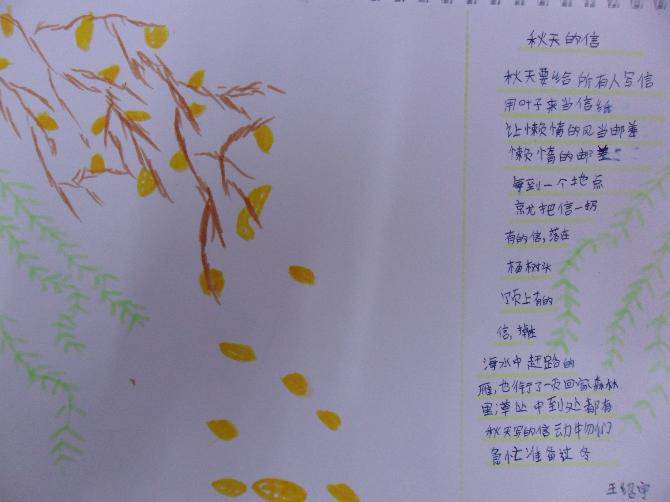 秋天的信
秋天要给所有人写信
用叶子来当信纸
让懒惰的风当邮差
懒惰的邮差
每到一个地点
就把信一扔
有的信,落在
杨树头
顶上有的
信,掉在
海水中赶路的
雁,也衔了一页回家森林
里,草丛中到处都有
秋天写的信动物们
急忙准备过冬